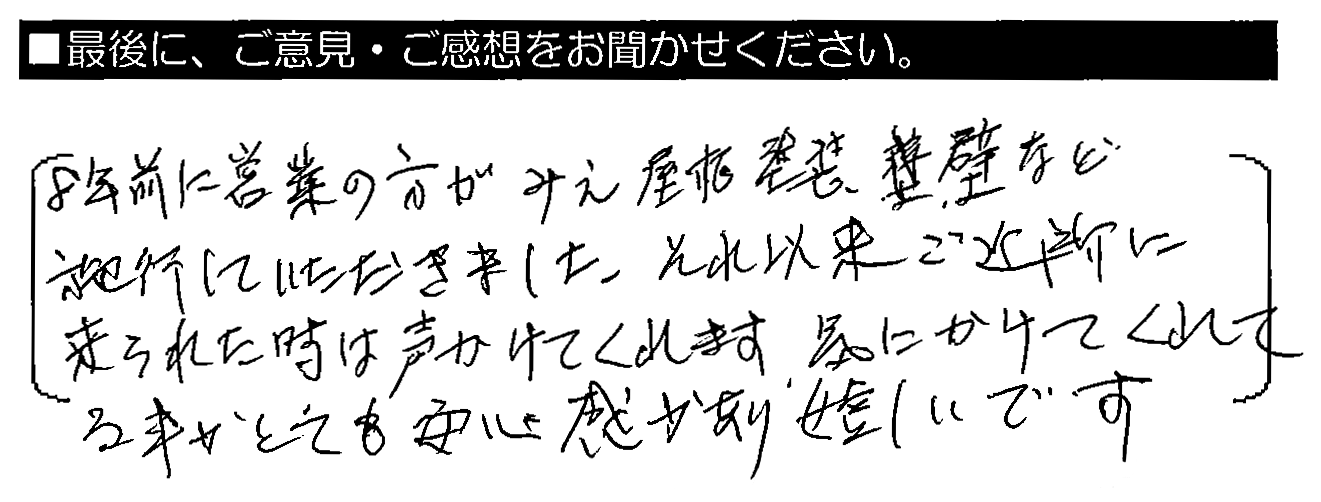 ■最後に、ご意見・ご感想をお聞かせください。
8年前に営業の方がみえ屋根塗装、壁など
施行していただき来した。それ以来ご近所に
来られた時は声かけてくれます 気にかけてくれて
る事がとても安心感が有り嬉しいです